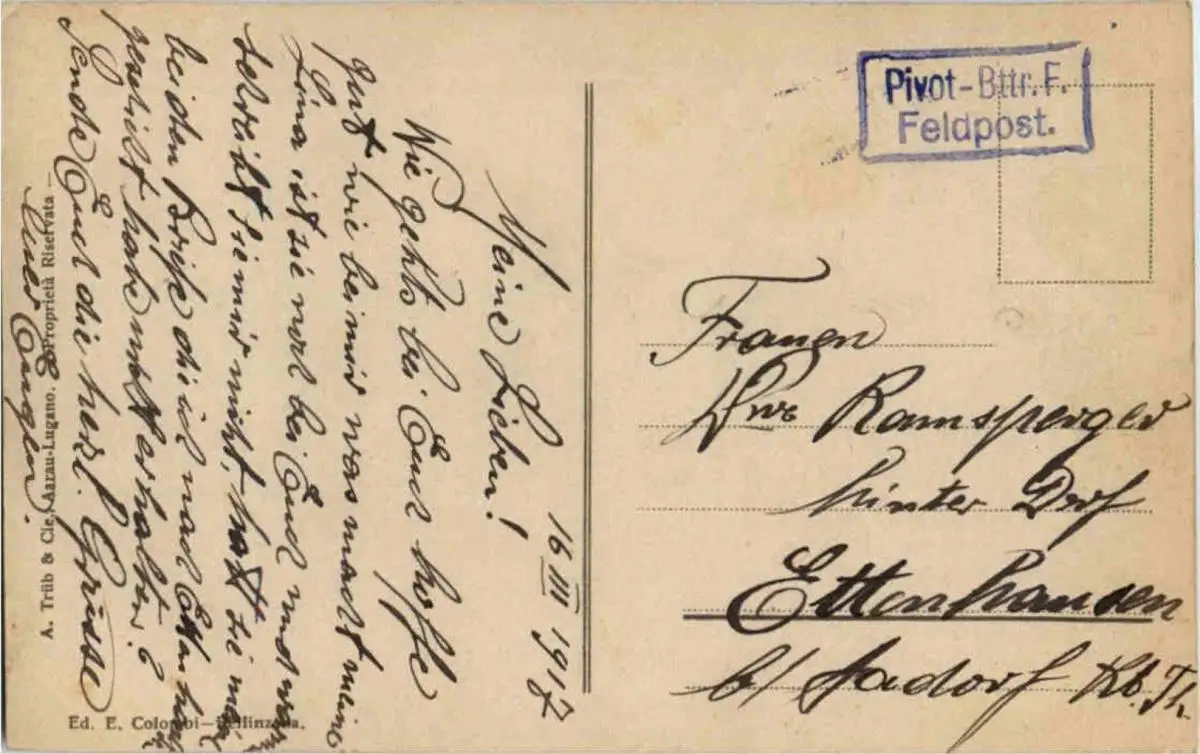 16 III 1917
Meine Lieben!
Wie gehts bei Euch hoffe
gut wie bei mir was macht meine
Lina ist sie noch bei Euch und
schreibt sie mir nicht, hatt sie meine
beiden Briefe die ich nach Ettenhausen
geschickt habe nicht erhalten?
Sende Euch die herzl. Grüsse
Euer Eugen.
A. Trüb & Cie, Aarau-Lugano. Proprietà Riservata
Ed. E. Colombi-Bellinzona.
Pivot-Bttr. F.
Feldpost.
Frauen
Wwe Ramsperger
hinter Dorf
Ettenhausen
b/ Aadorf Kt. Th.